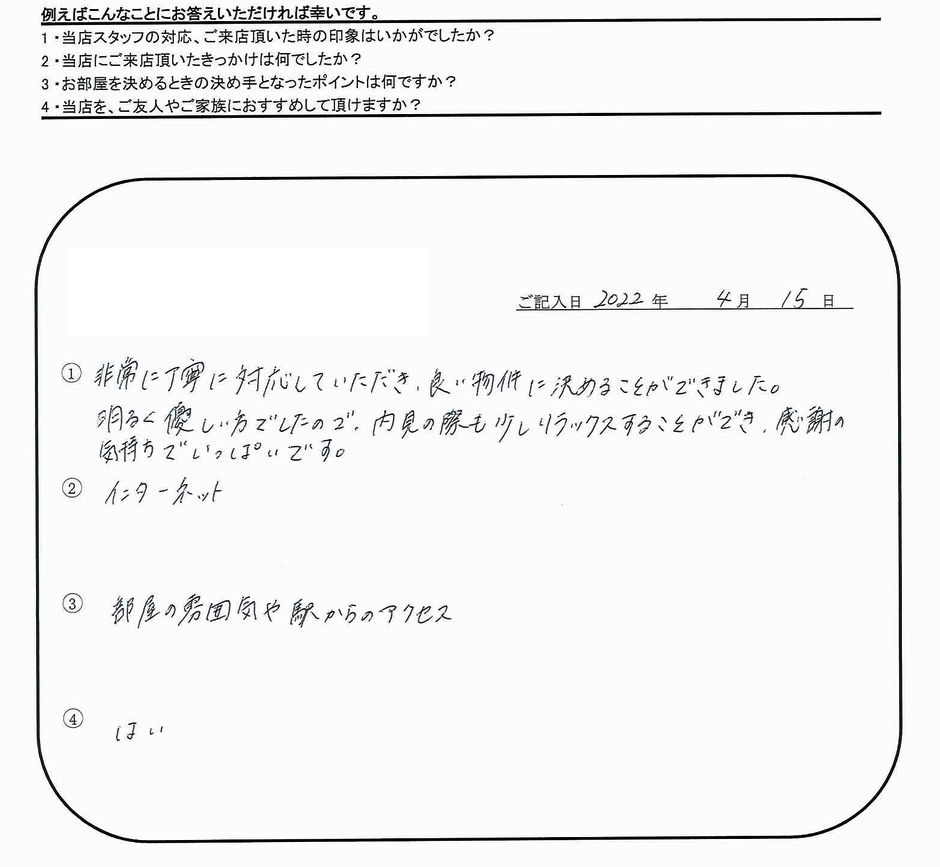 例えばこんなことにお答えいただければ幸いです。
1・当店スタッフの対応、ご来店頂いた時の印象はいかがでしたか?
2・当店にご来店頂いたきっかけは何でしたか?
3・お部屋を決めるときの決め手となったポイントは何ですか?
4・当店を、ご友人やご家族におすすめして頂けますか?
ご記入日 2022 年 4 月 15 日
① 非常に丁寧に対応していただき、良い物件に決めることができました。
明るく優しい方でしたので、内見の際も少しリラックスすることができ、感謝の
気持ちでいっぱいです。
② インターネット
③ 部屋の雰囲気や駅からのアクセス
④ はい